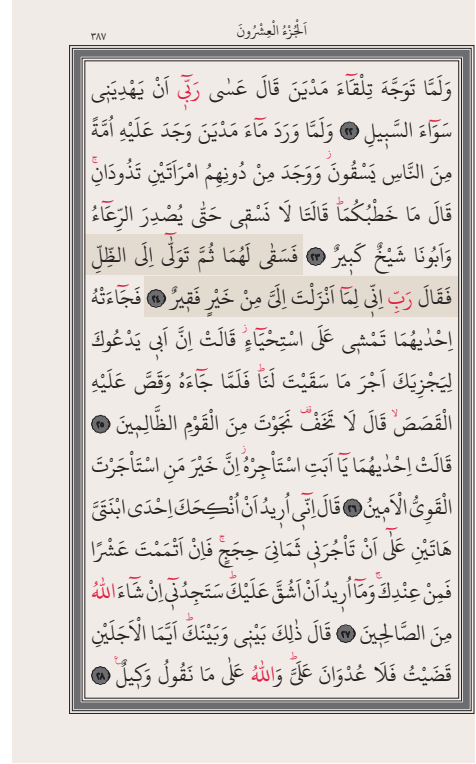 اَلْجُزْءُ الْعِشْرُونَ
٣٨٧
وَلَمَّا تَوَجَّهَ تِلْقَٓاءَ مَدْيَنَ قَالَ عَسٰى رَبّٖٓي اَنْ يَهْدِيَنٖي
سَوَٓاءَ السَّبٖيلِ ﴿٢٢﴾ وَلَمَّا وَرَدَ مَٓاءَ مَدْيَنَ وَجَدَ عَلَيْهِ اُمَّةً
مِنَ النَّاسِ يَسْقُونَۘ وَوَجَدَ مِنْ دُونِهِمُ امْرَاَتَيْنِ تَذُودَانِۚ
قَالَ مَا خَطْبُكُمَاۜ قَالَتَا لَا نَسْقٖي حَتّٰى يُصْدِرَ الرِّعَٓاءُ
وَاَبُونَا شَيْخٌ كَبٖيرٌ ﴿٢٣﴾ فَسَقٰى لَهُمَا ثُمَّ تَوَلّٰٓى اِلَى الظِّلِّ
فَقَالَ رَبِّ اِنّٖي لِمَٓا اَنْزَلْتَ اِلَيَّ مِنْ خَيْرٍ فَقٖيرٌ ﴿٢٤﴾ فَجَٓاءَتْهُ
اِحْدٰيهُمَا تَمْشٖي عَلَى اسْتِحْيَٓاءٍۘ قَالَتْ اِنَّ اَبٖي يَدْعُوكَ
لِيَجْزِيَكَ اَجْرَ مَا سَقَيْتَ لَنَاۜ فَلَمَّا جَٓاءَهُ وَقَصَّ عَلَيْهِ
الْقَصَصَۙ قَالَ لَا تَخَفْ۠ نَجَوْتَ مِنَ الْقَوْمِ الظَّالِمٖينَ ﴿٢٥﴾
قَالَتْ اِحْدٰيهُمَا يَٓا اَبَتِ اسْتَأْجِرْهُۘ اِنَّ خَيْرَ مَنِ اسْتَأْجَرْتَ
الْقَوِيُّ الْاَمٖينُ ﴿٢٦﴾ قَالَ اِنّٖٓي اُرٖيدُ اَنْ اُنْكِحَكَ اِحْدَى ابْنَتَيَّ
هَاتَيْنِ عَلٰٓى اَنْ تَأْجُرَنٖي ثَمَانِيَ حِجَجٍۚ فَاِنْ اَتْمَمْتَ عَشْرًا
فَمِنْ عِنْدِكَۚ وَمَٓا اُرٖيدُ اَنْ اَشُقَّ عَلَيْكَۜ سَتَجِدُنٖٓي اِنْ شَٓاءَ اللّٰهُ
مِنَ الصَّالِحٖينَ ﴿٢٧﴾ قَالَ ذٰلِكَ بَيْنٖي وَبَيْنَكَۜ اَيَّمَا الْاَجَلَيْنِ
قَضَيْتُ فَلَا عُدْوَانَ عَلَيَّۜ وَاللّٰهُ عَلٰى مَا نَقُولُ وَكٖيلٌ۟ ﴿٢٨﴾